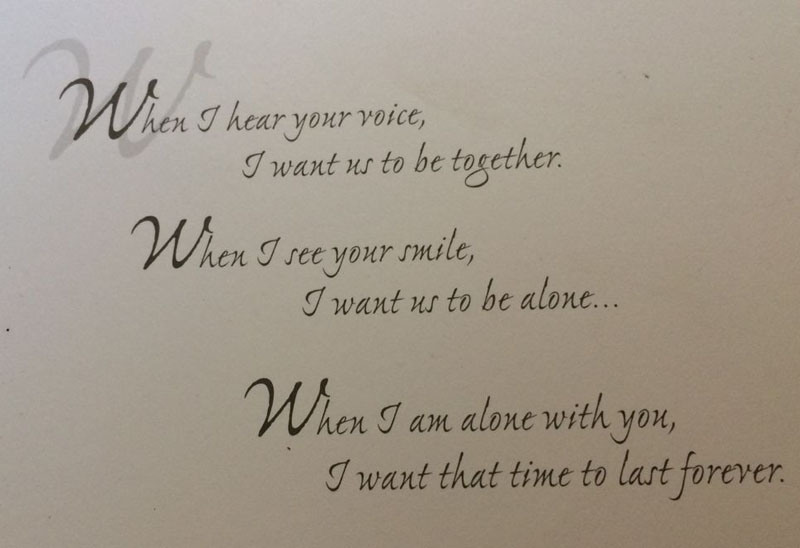 When I hear your voice,
I want us to be together.
When I see your smile,
I want us to be alone...
When I am alone with you,
I want that time to last forever.